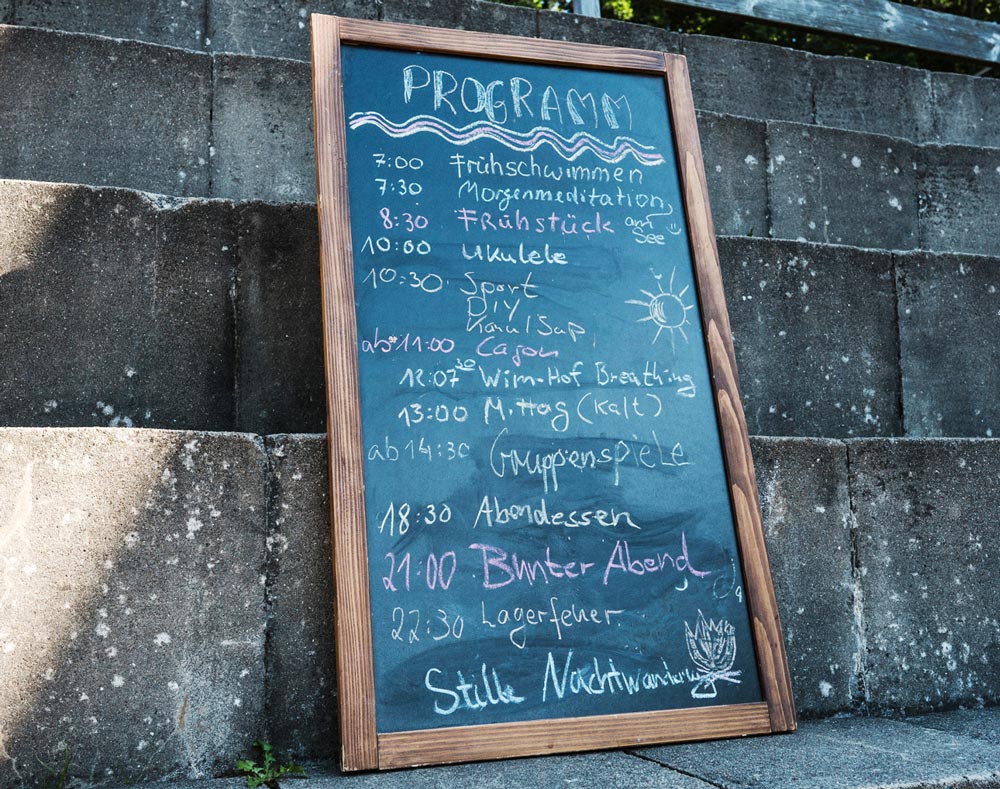 PROGRAMM
7:00 Frühschwimmen
7:30 Morgenmeditation
am
8:30 FRühstück
See
10:00 Ukulele
10:30 Sport
DIY
Kanu/Sup
ab 11:00 Cajon
12:07 30 Wim-Hof Breathing
13:00 Mittag (Kalt)
ab 14:30 Gruppenspiele
18:30 Abendessen
21:00 Bunter Abend
22:30 Lagerfeuer
Stille